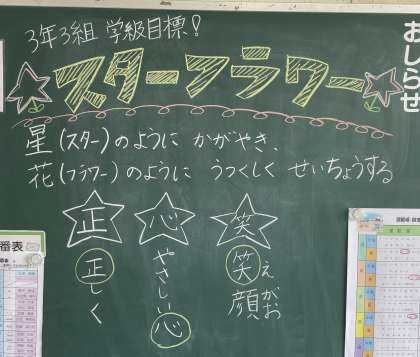 3年3組 学級目標!
スターフラワー
おしらせ
星(スター)のように かがやき、
花(フラワー)のように うつくしく せいちょうする
正 心 笑
正しく
やさしい心
笑顔
えがお
番表